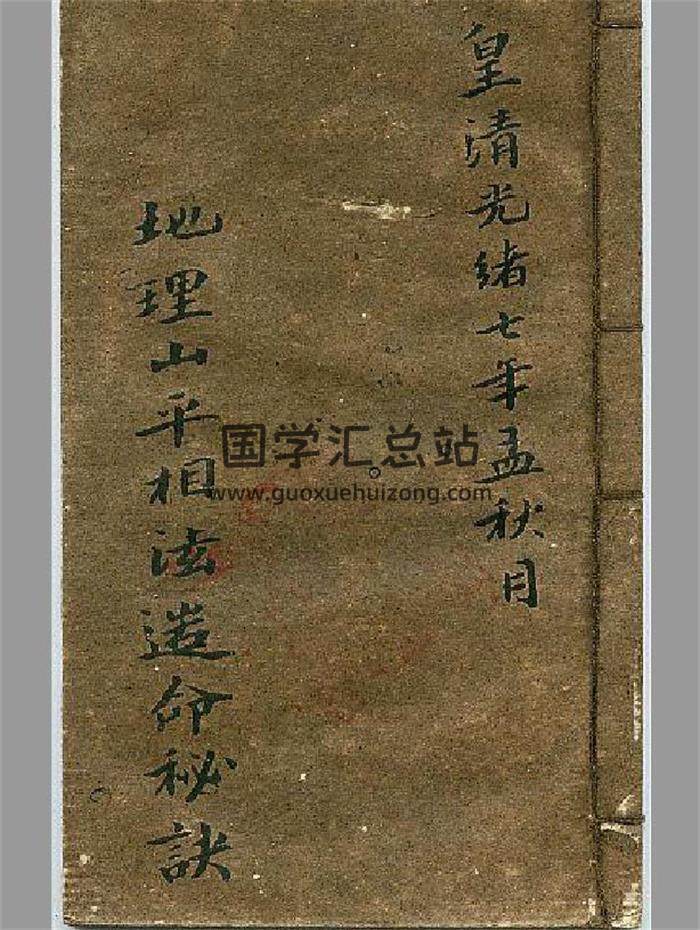 皇清光緒七年孟秋月
地理山平相法造命秘訣
国学汇总站
www.guoxuehuizong.com